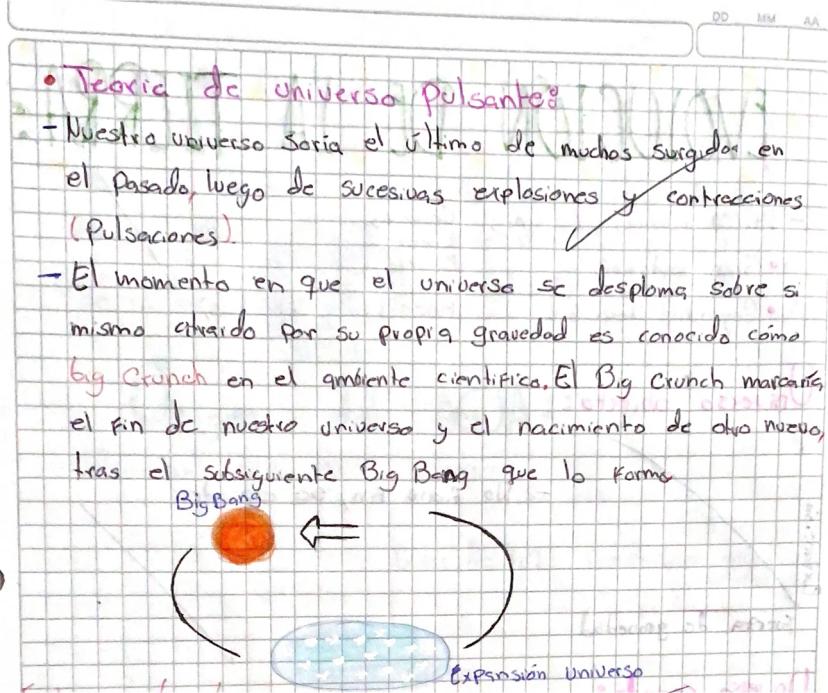 DD MM AA
• Teoria de universo Pulsante:
- Nuestro universo seria el último de muchos surgidos en
el pasado, luego de sucesivas explosiones y contracciones
(Pulsaciones).
- El momento en que el universo se desploma sobre si
mismo atraido por su propia gravedad es conocido como
big Crunch en el ambiente cientifico. El Big Crunch marcaría
el fin de nuestro universo y el nacimiento de otro nuevo,
tras el subsiguiente Big Bang que lo forme
Big Bang
Expansión Universo